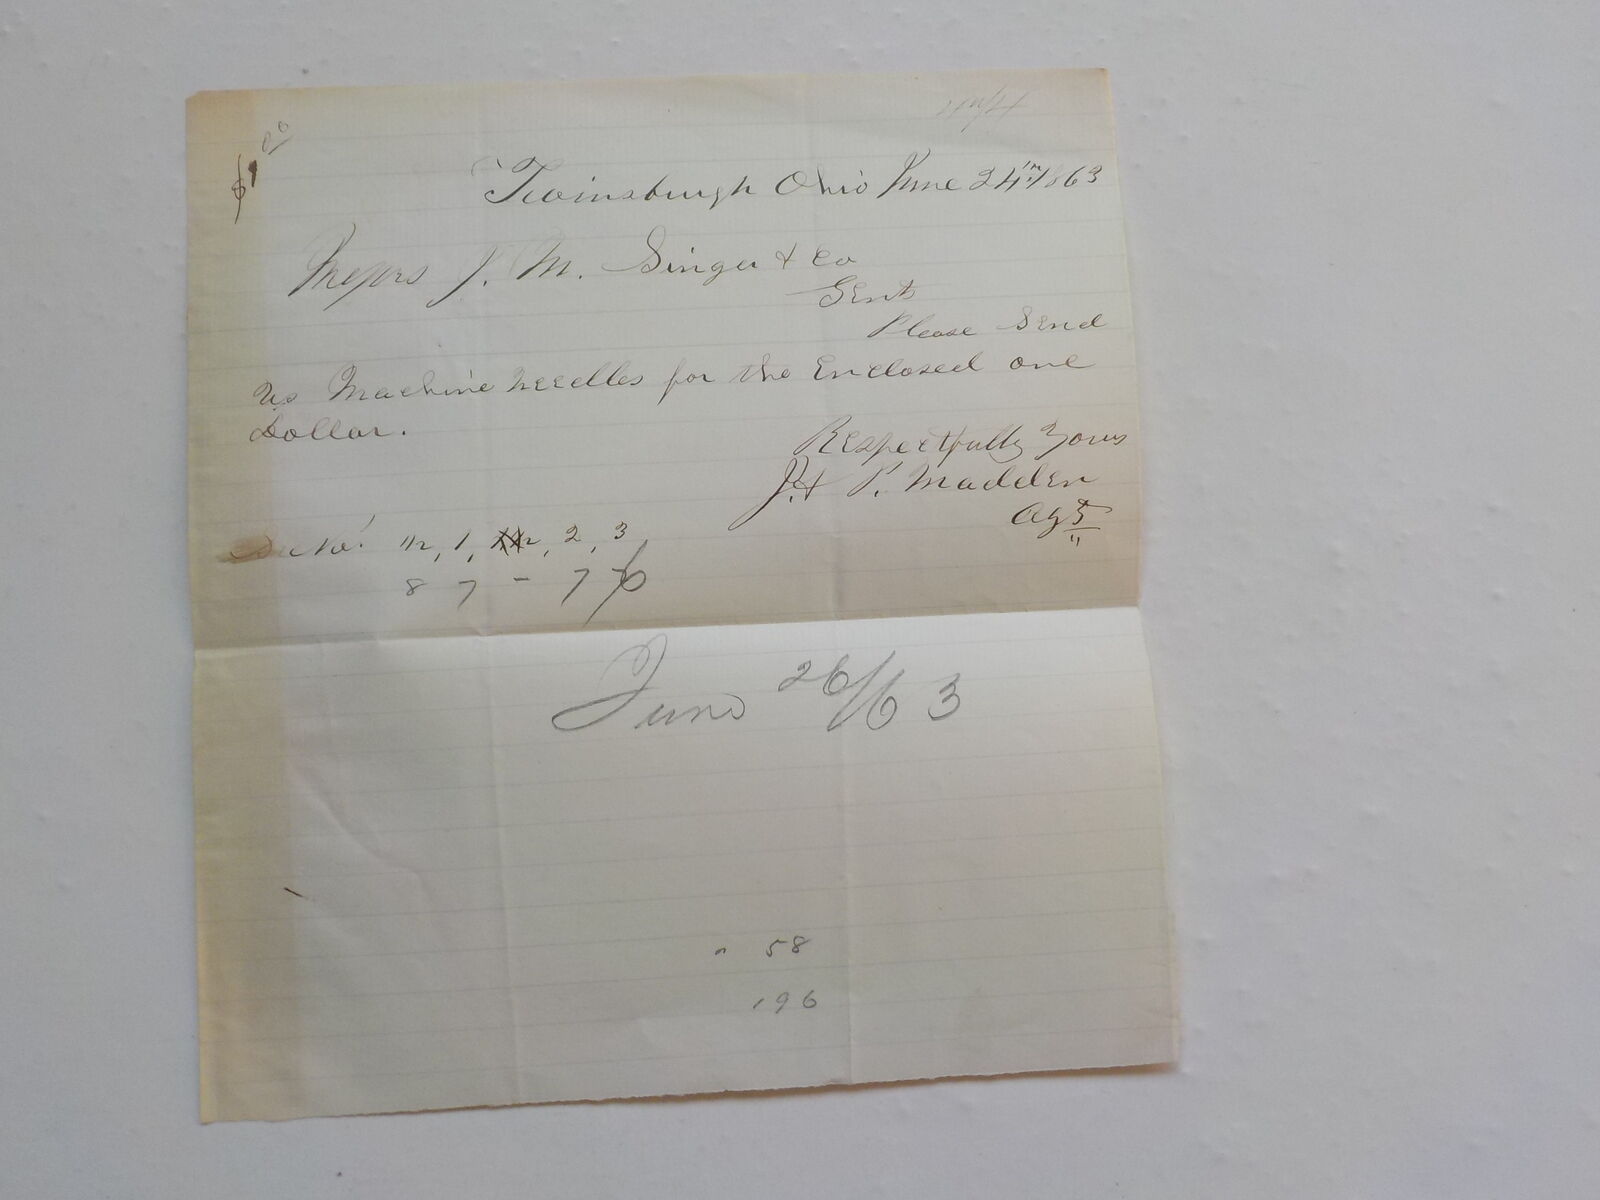 $1 00
Twinsburgh Ohio June 24th 1863
Messrs J. M. Singer & Co
Gents
Please Send
us Machine Needles for the Enclosed one
Dollar.
Respectfully Yours
J. & P. Madden
Agt
No. 1/2, 1, 2, 3
8 7 - 7 7
June 26/63
" 58
196